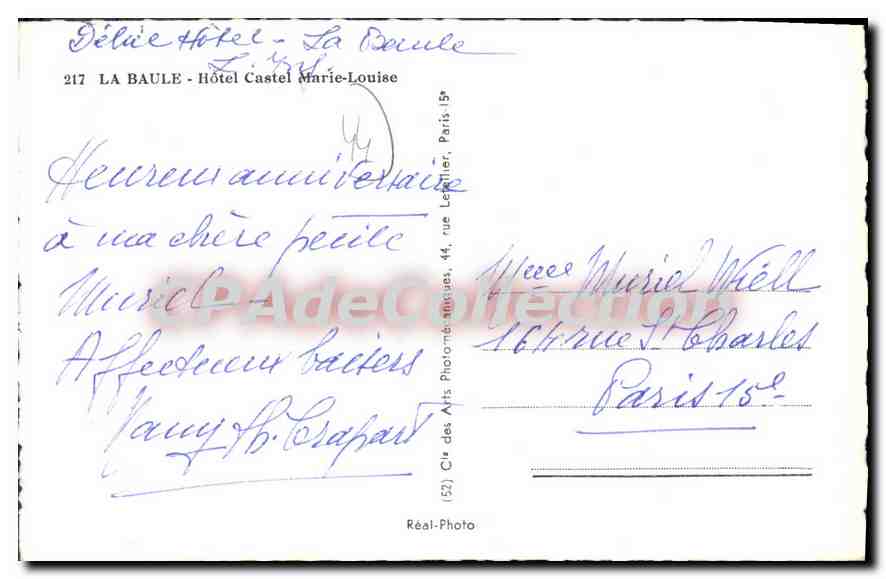 Hôtel - La Baule
217 LA BAULE - Hôtel Castel Marie-Louise
44
Heureux anniversaire
à ma chère petite
Muriel -
Affectueux baisers
Crapart
(52) Cie des Arts Photomécaniques, 44, rue Letellier, Paris-15e
Réal-Photo
Muriel Wiell
164 rue St Charles
Paris 15e
CPAdeCollection